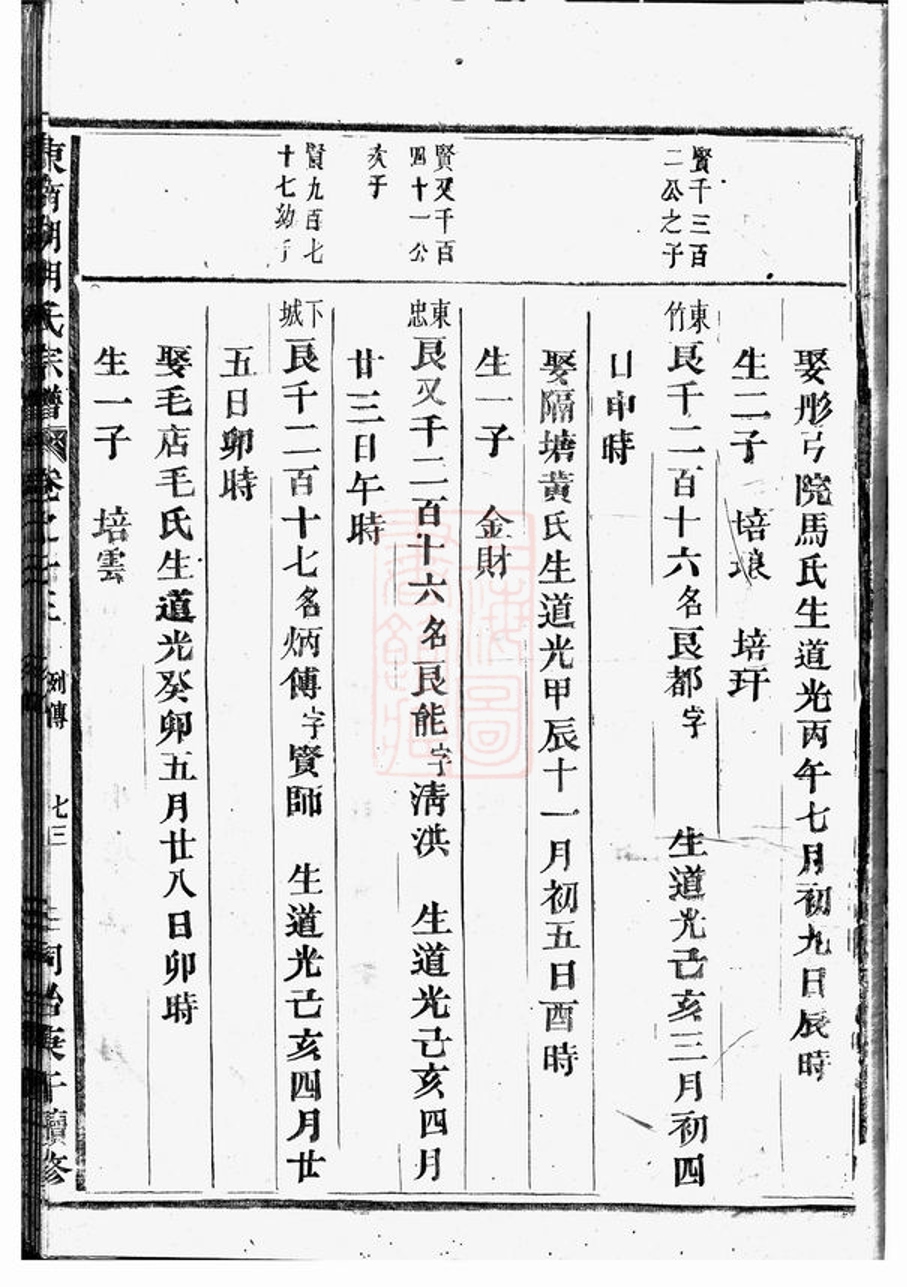 娶彤弓院馬氏生道光丙午七月初九日辰時
生二子 培琅 培玕
賢千三百
二公之子
東竹 良千二百十六名良都字 生道光己亥三月初四
日申時
娶隔塘黄氏生道光甲辰十一月初五日酉時
生一子 金財
賢又千百
四十一公
次子
東忠 良又千二百十六名良能字淸洪 生道光己亥四月
廿三日午時
賢九百七
十七幼子
下城 良千二百十七名炳傳字賢師 生道光己亥四月廿
五日卯時
娶毛店毛氏生道光癸卯五月廿八日卯時
生一子 培雲
胡氏宗譜 卷之 列傳 七三 同治庚午續修